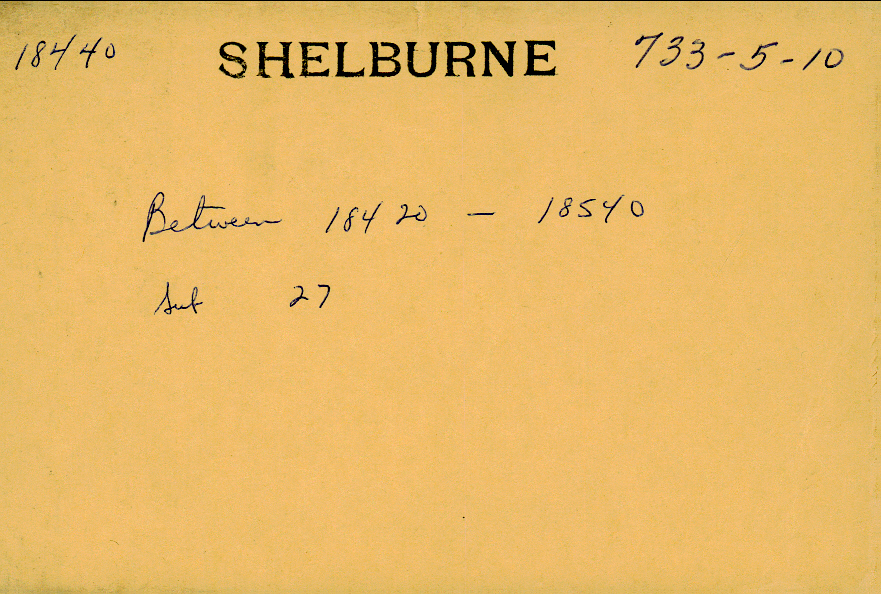 18440 SHELBURNE 733-5-10
Between 18420 - 18540
Sub 27